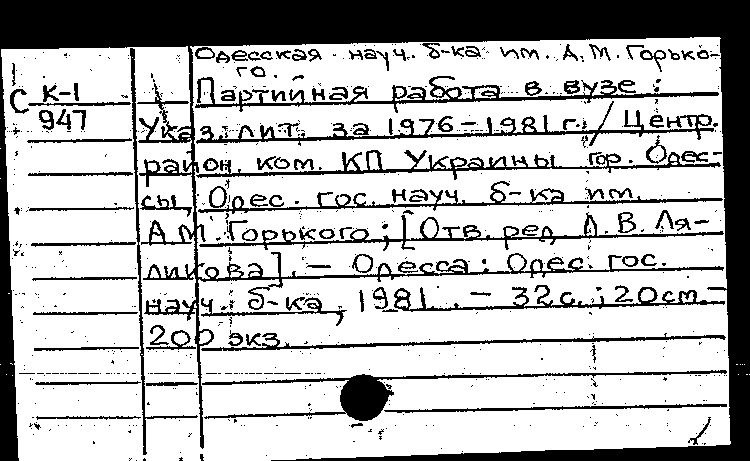 Одесская науч. б-ка им. А.М. Горько-
го.
С К-1
947
Партийная работа в вузе :
Указ. лит. за 1976-1981 г. / Центр.
район. ком. КП Украины гор. Одес-
сы, Одес. гос. науч. б-ка им.
А.М. Горького ; [Отв. ред. Л.В. Ля-
ликова]. — Одесса : Одес. гос.
науч. б-ка, 1981 . — 32с. ; 20см. —
200 экз.